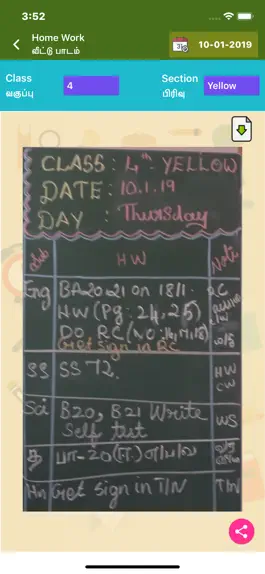 3:52
Home Work
வீட்டு பாடம்
10-01-2019
Class
வகுப்பு
4
Section
பிரிவு
Yellow
CLASS : 4th YELLOW
DATE : 10.1.19
DAY : Thursday
Sub HW Note
Eng BA20,21 on 18/1. RC
HW (Pg: 24, 25)
DO RC (NO:16,17,18)
Get sign in RC
SS SS 72. HW
CW
Sci B20, B21 Write WS
Self test
த பா-20
Hn Get sign in T/N T/N